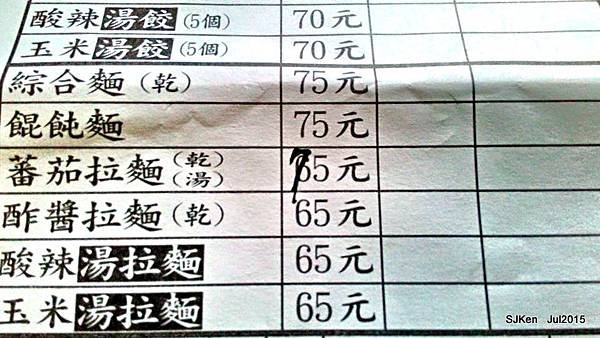 酸辣湯餃(5個) 70元
玉米湯餃(5個) 70元
綜合麵(乾) 75元
餛飩麵 75元
蕃茄拉麵(乾)(湯) 75元
酢醬拉麵(乾) 65元
酸辣湯拉麵 65元
玉米湯拉麵 65元
SJKen Jul2015